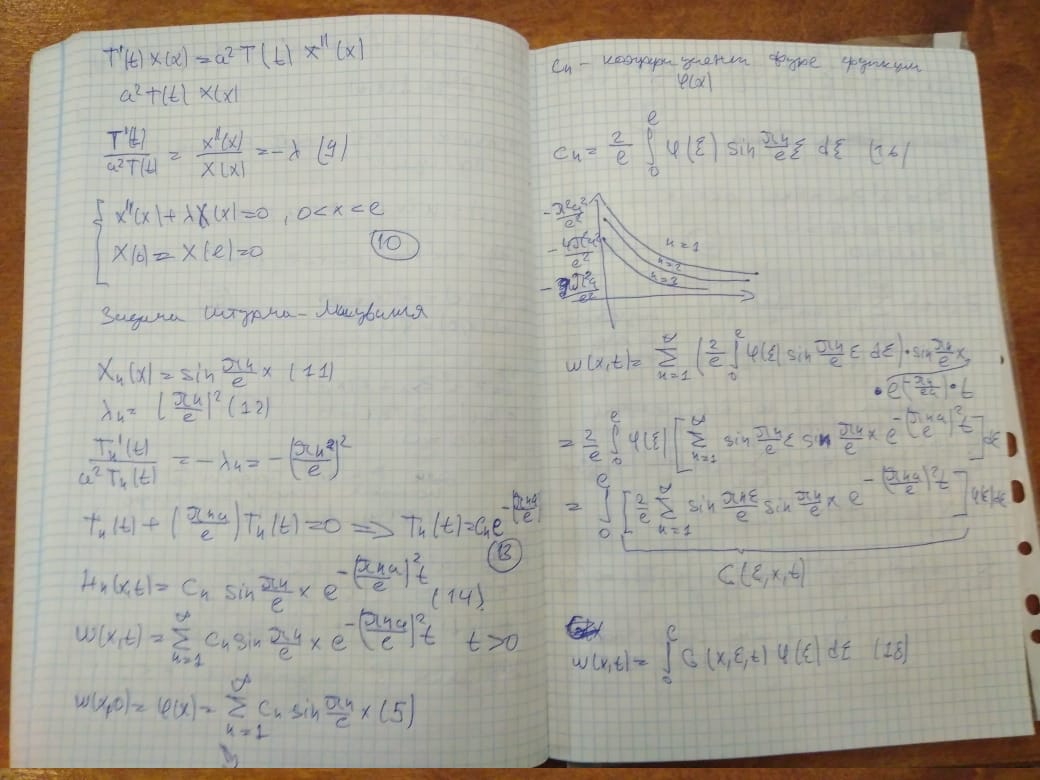 T'(t) X(x) = a² T(t) X''(x)
a² T(t) X(x)
T'(t)/a²T(t) = X''(x)/X(x) = -λ (9)
{ X''(x) + λX(x) = 0, 0 < x < e
X(0) = X(e) = 0 (10)
Задача Штурма-Лиувилля
Xₙ(x) = sin πn/e x (11)
λₙ = (πn/e)² (12)
Tₙ'(t)/a²Tₙ(t) = -λₙ = -(πn²/e)²
Tₙ(t) + (πna/e)Tₙ(t) = 0 => Tₙ(t) = cₙe^-(πna/e)
(13)
Hₙ(x,t) = cₙ sin πn/e x e^-(πna/e)²t (14)
w(x,t) = ∑ₙ₌₁^∞ cₙ sin πn/e x e^-(πna/e)²t t > 0
w(x,0) = φ(x) = ∑ₙ₌₁^∞ cₙ sin πn/e x (5)
cₙ - коэффициент фуре функции
φ(x)
cₙ = 2/e ∫₀^e φ(ξ) sin πn/e ξ dξ (16)
-π²a²/e²
n=1
-4π²a²/e²
n=2
-9π²a/e²
n=2
w(x,t) = ∑ₙ₌₁^∞ (2/e ∫₀^e φ(ξ) sin πn/e ξ dξ) · sin πn/e x
· e(-πn/ea) · t
= 2/e ∫₀^e φ(ξ) [∑ₙ₌₁^∞ sin πn/e ξ sin πn/e x e^-(πna/e)²t] dξ
= ∫₀^e [2/e ∑ₙ₌₁^∞ sin πnξ/e sin πn/e x e^-(πna/e)²t] φ(ξ)dξ
G(ξ,x,t)
w(x,t) = ∫₀^e G(x,ξ,t) φ(ξ) dξ (18)